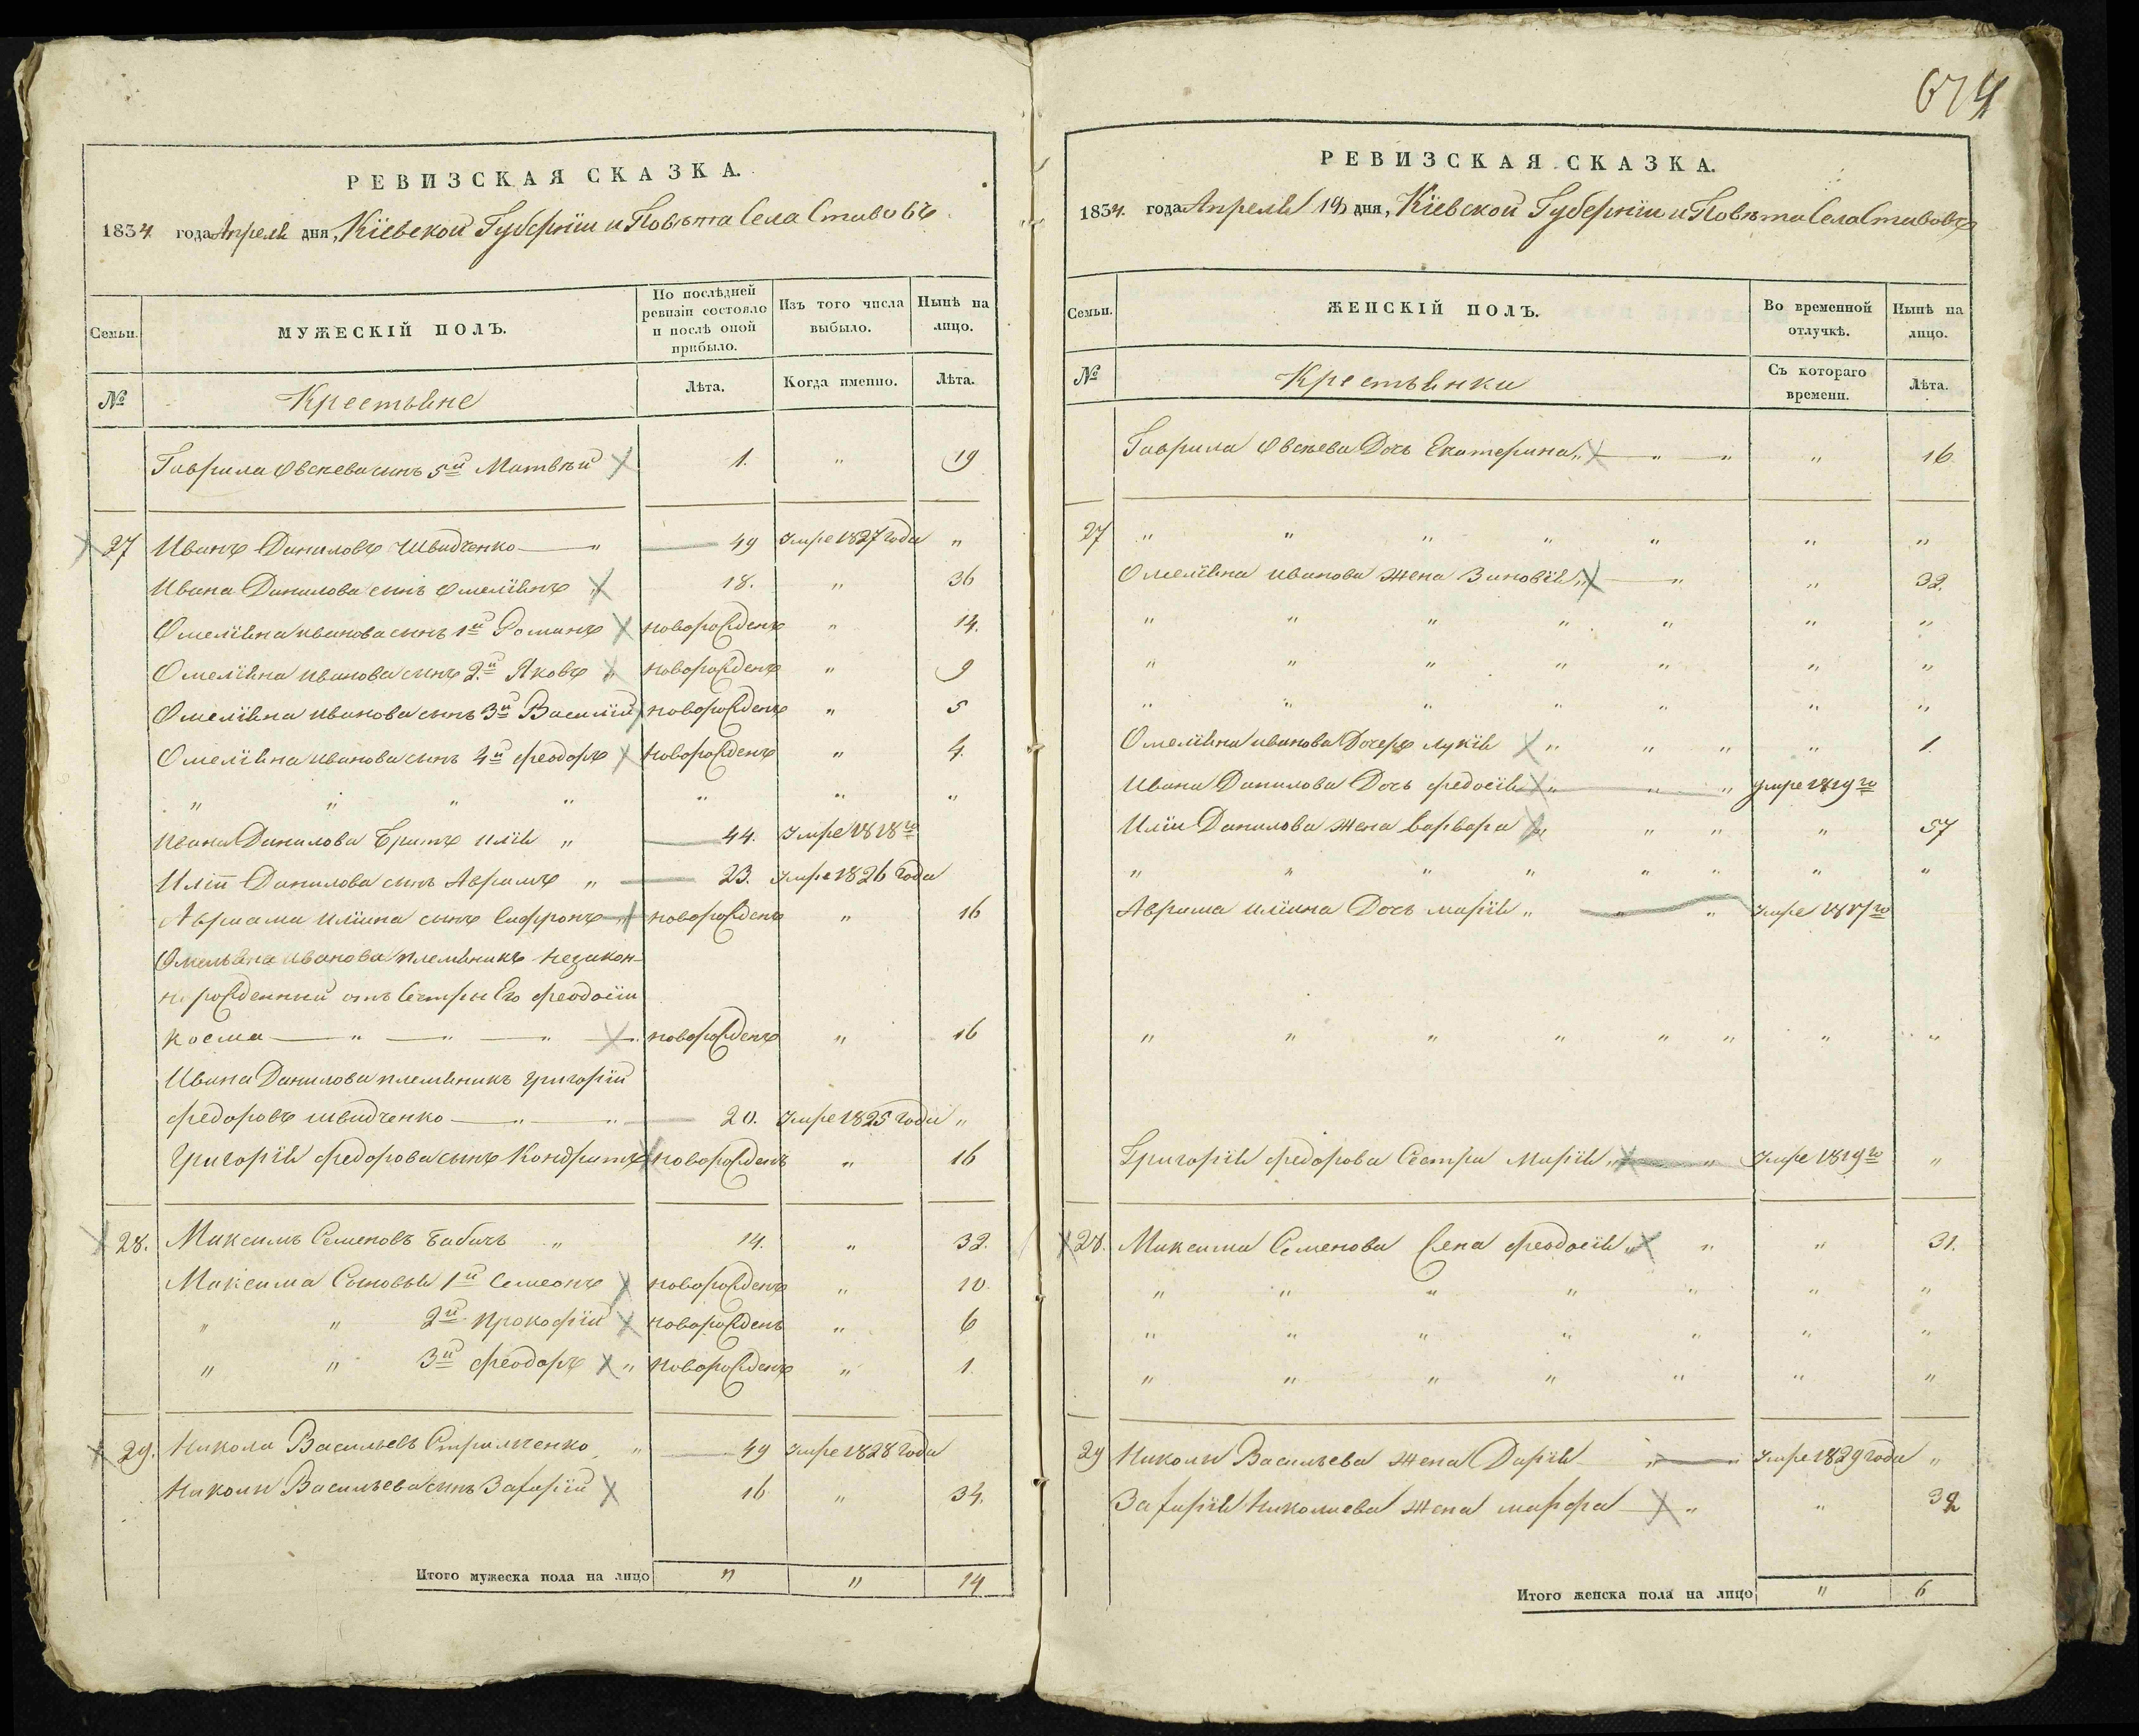 674
РЕВИЗСКАЯ СКАЗКА.
1834. года Апреля дня, Кіевской Губерніи и Повѣта Села Ставовъ
Семьи.
МУЖЕСКІЙ ПОЛЪ.
По послѣдней ревизіи состояло и послѣ оной прибыло.
Изъ того числа выбыло.
Нынѣ на лицо.
№
Крестьяне
Лѣта.
Когда именно.
Лѣта.
Гаврила Овсеева сынъ 5й Матвѣй 1. " 19
27 Иванъ Даниловъ Швидченко " 49 Умре 1827 года "
Ивана Данилова сынъ Омелянъ 18. " 36
Омеліяна иванова сынъ 1й Романъ новорожденъ " 14.
Омеліяна иванова сынъ 2й Яковъ " новорожденъ " 9
Омеліяна иванова сынъ 3й Василій новорожденъ " 5
Омеліяна иванова сынъ 4й феодоръ новорожденъ " 4.
" " " " " " "
ивана Данилова Братъ илія " 44. Умре 1818го
Иліи Данилова сынъ Аврамъ " 23. Умре 1826 года
Авраама иліина сынъ Сафронъ новорожденъ " 16
Омельяна иванова племянникъ незакон-
норожденный отъ Сестры Его феодосіи
косма " " " новорожденъ " 16
Ивана Данилова племянникъ григорій
федоровъ швидченко " " 20. Умре 1825 года "
Григорія федорова сынъ Кондратъ новорожденъ " 16
28. Максимъ Семеновъ бабичъ " 14. " 32.
Максима Сыновья 1й Семеонъ новорожденъ " 10.
" " 2й Прокофій новорожденъ " 6
" " 3й феодоръ " новорожденъ " 1.
29. Никола Васильевъ Стрилченко " 49 Умре 1828 года
Николы Васильева сынъ Захарій 16 " 34.
Итого мужеска пола на лицо " " 14
РЕВИЗСКАЯ СКАЗКА.
1834. года Апреля 19 дня, Кіевской Губерніи и Повѣта Села Ставовъ
Семьи.
ЖЕНСКІЙ ПОЛЪ.
Во временной отлучкѣ.
Нынѣ на лицо.
№
Крестьянки
Съ котораго времени.
Лѣта.
Гаврила Овсѣева Дочь Екатерина " " " " 16.
27 " " " " " " "
Омеліяна иванова жена Зиновія " " " 32.
" " " " " " "
" " " " " " "
" " " " " " "
Омеліяна иванова Дочерь лукія " " " " 1.
Ивана Данилова Дочь федосія " " " умре 1819го
Иліи Данилова жена варвара " " " " 57
" " " " " " " "
Аврама иліина Дочь марія " " " Умре 1817го
" " " " " " " "
Григорія федорова Сестра Марія " " Умре 1819го "
28. Максима Семенова жена феодосія " " " 31.
" " " " " " "
" " " " " " "
" " " " " " "
29 Николы Васильева жена Дарія " " Умре 1829 года "
Захарія Николаева жена марфа " " 32
Итого женска пола на лицо " 6